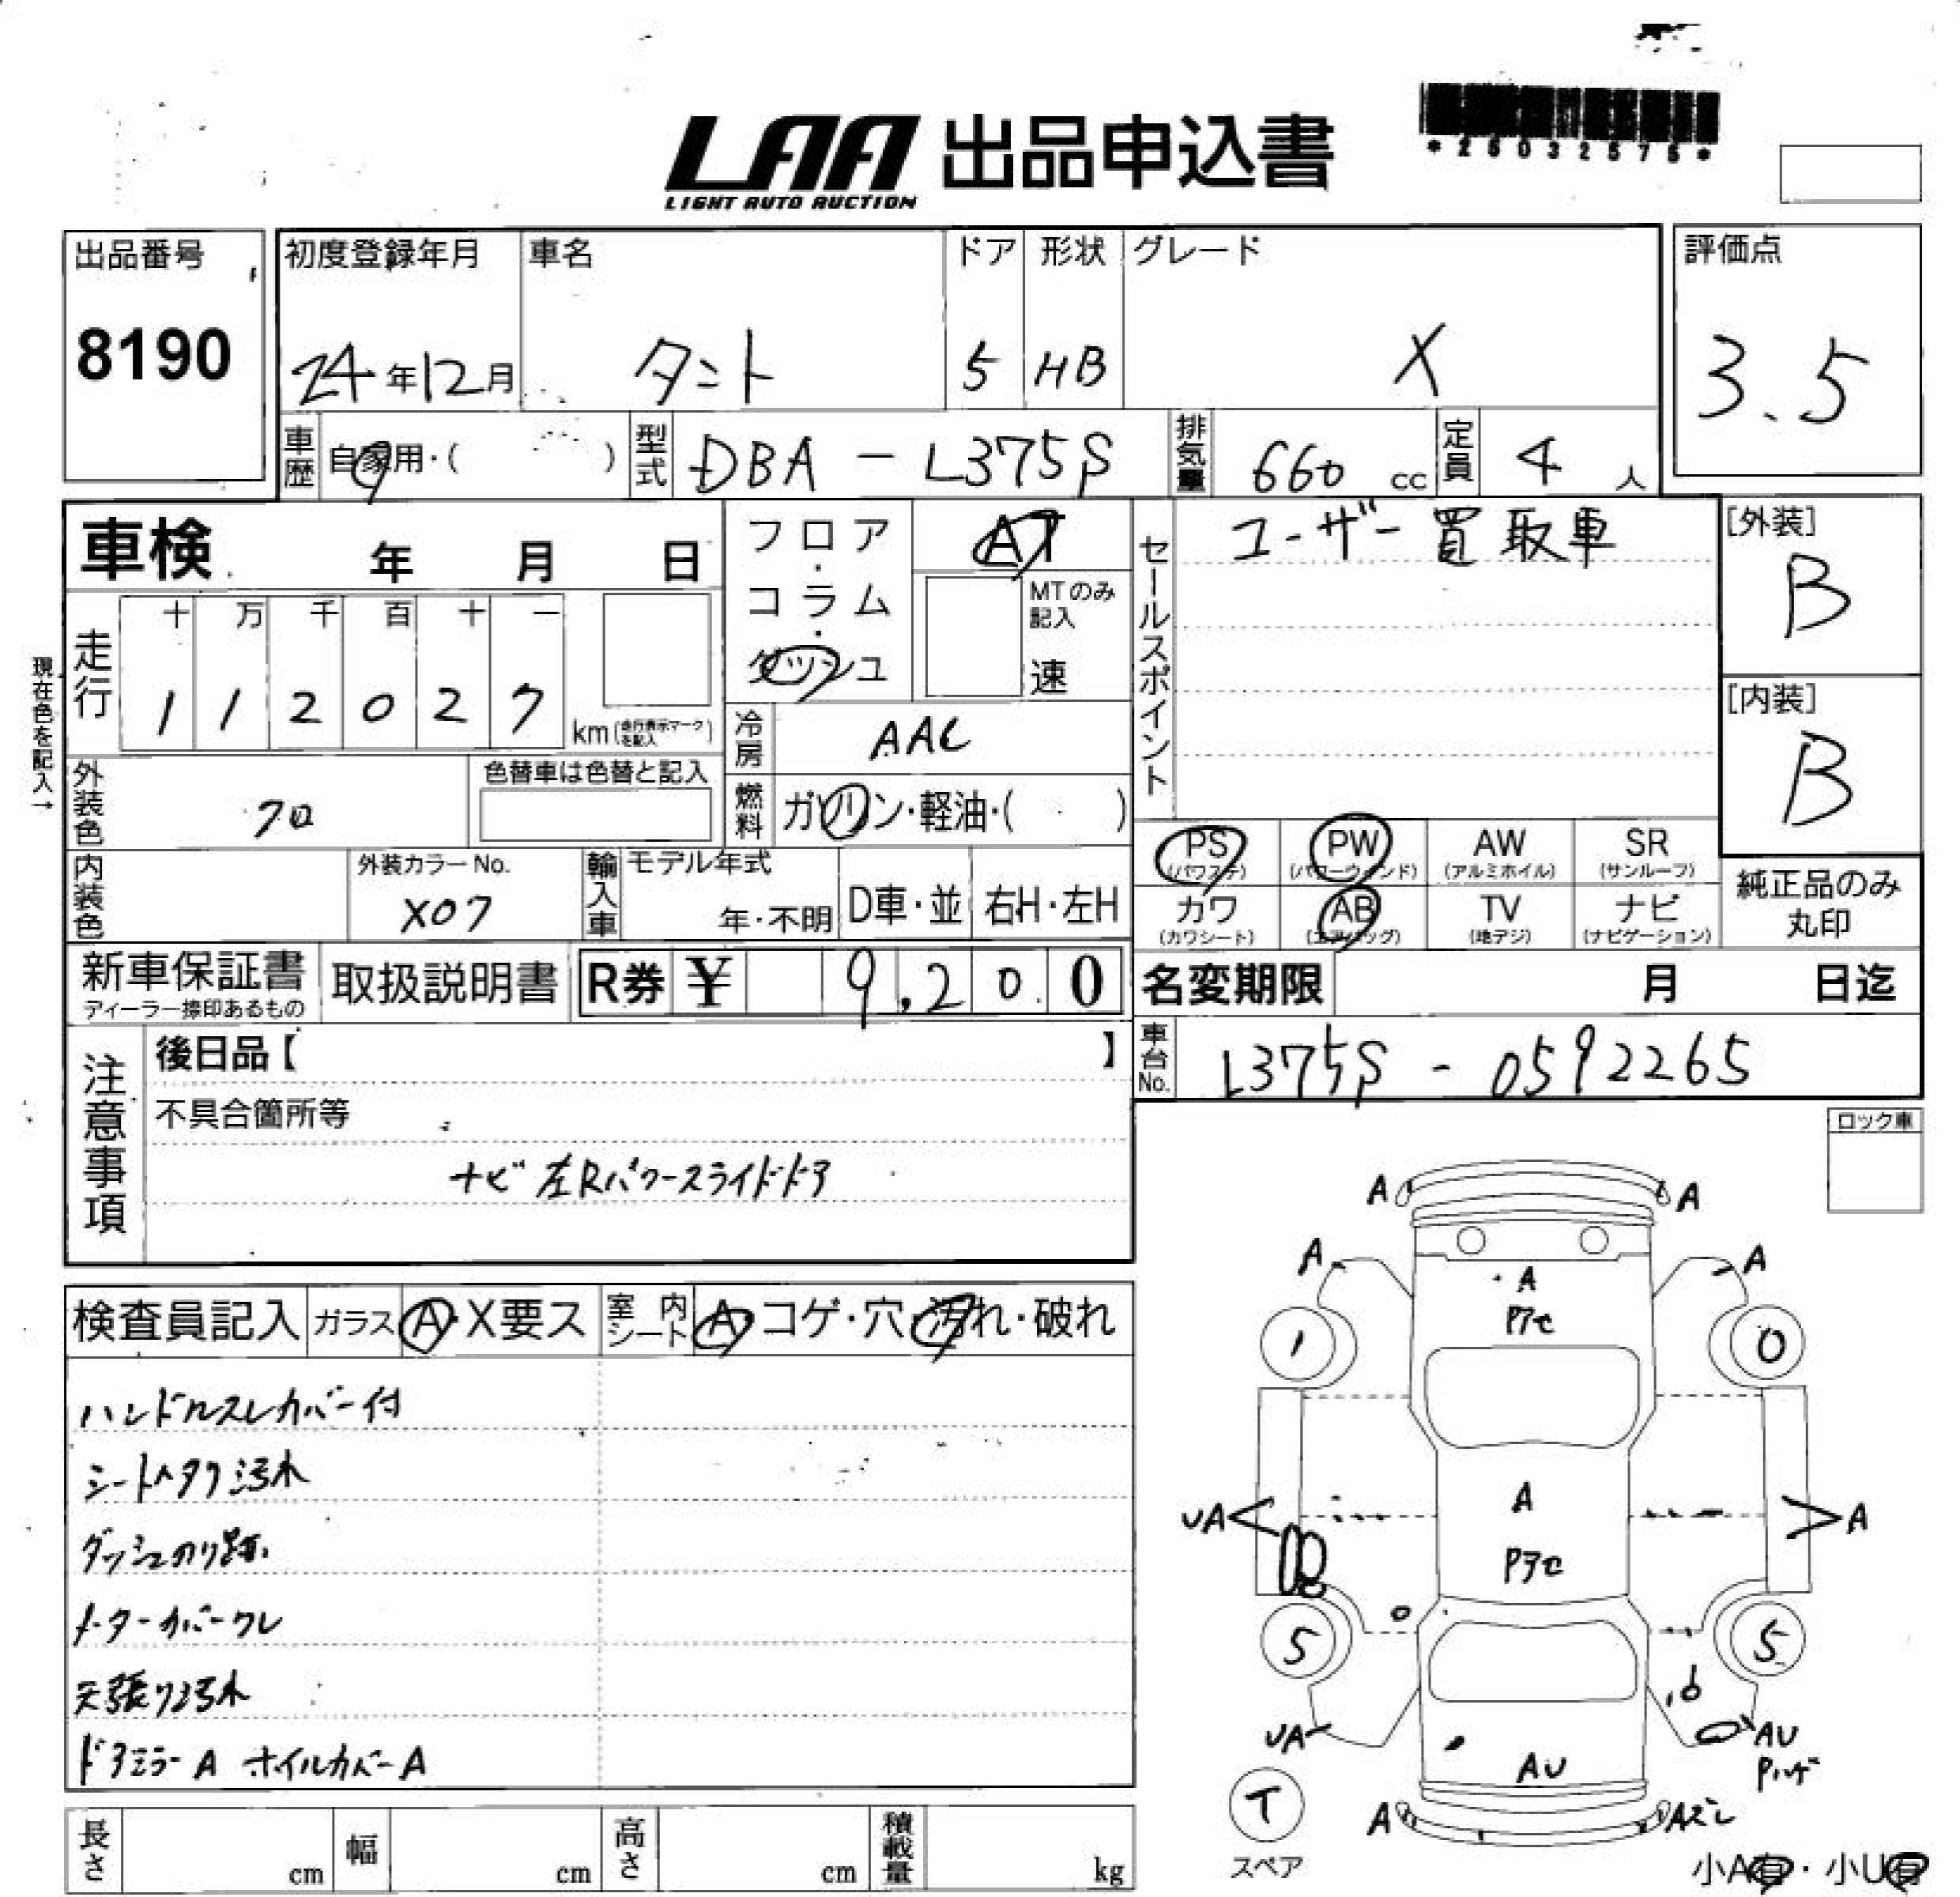 LAA 出品申込書
LIGHT AUTO AUCTION
出品番号
8190
初度登録年月
24年12月
車名
タント
ドア
5
形状
HB
グレード
X
評価点
3.5
車歴
自家用・( )
型式
DBA-L375S
排気量
660 cc
定員
4 人
車検 年 月 日
フロア・コラム・ダッシュ
AT
MTのみ記入
速
セールスポイント
ユーザー買取車
[外装]
B
[内装]
B
現在色を記入→
走行
十 万 千 百 十 一
1 1 2 0 2 7
km(走行表示マークを記入)
冷房
AAC
燃料
ガソリン・軽油・( )
外装色
クロ
色替車は色替と記入
内装色
外装カラーNo.
X07
輸入車
モデル年式
年・不明
D車・並
右H・左H
PS
(パワステ)
PW
(パワーウィンド)
AW
(アルミホイル)
SR
(サンルーフ)
カワ
(カワシート)
AB
(エアバッグ)
TV
(地デジ)
ナビ
(ナビゲーション)
純正品のみ丸印
新車保証書
ディーラー捺印あるもの
取扱説明書
R券 ¥ 9,200
名変期限 月 日迄
車台No.
L375S-0592265
注意事項
後日品【 】
不具合箇所等
ナビ 左Rパワースライドドア
ロック車
検査員記入
ガラス A・X要ス
室内シート A・コゲ・穴・汚れ・破れ
ハンドルスレカバー付
シートヘタリ汚れ
ダッシュのり跡
メーターカバーワレ
天張り汚れ
ドアミラーA ホイルカバーA
A A
A A
A
Pアセ
1 0
A
UA A
Pアセ
5 5
UA
AU
AU
Pハゲ
T
スペア
A Aズレ
小A有・小U有
長さ cm
幅 cm
高さ cm
積載量 kg